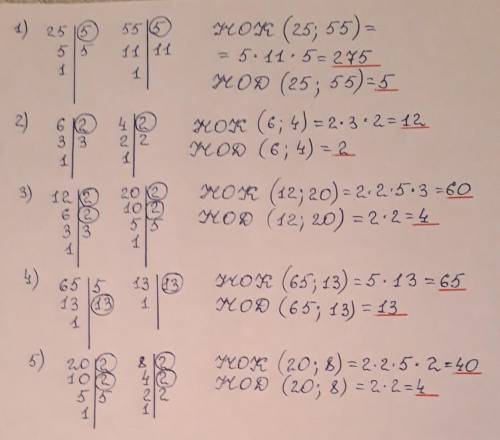 1) 25 | 5 55 | 5 НОК (25; 55) =
5 | 5 11 | 11 = 5 · 11 · 5 = 275
1 | 1 | НОД (25; 55) = 5
2) 6 | 2 4 | 2 НОК (6; 4) = 2 · 3 · 2 = 12
3 | 3 2 | 2 НОД (6; 4) = 2
1 | 1 |
3) 12 | 2 20 | 2 НОК (12; 20) = 2 · 2 · 5 · 3 = 60
6 | 2 10 | 2 НОД (12; 20) = 2 · 2 = 4
3 | 3 5 | 5
1 | 1 |
4) 65 | 5 13 | 13 НОК (65; 13) = 5 · 13 = 65
13 | 13 1 | НОД (65; 13) = 13
1 |
5) 20 | 2 8 | 2 НОК (20; 8) = 2 · 2 · 5 · 2 = 40
10 | 2 4 | 2 НОД (20; 8) = 2 · 2 = 4
5 | 5 2 | 2
1 | 1 |